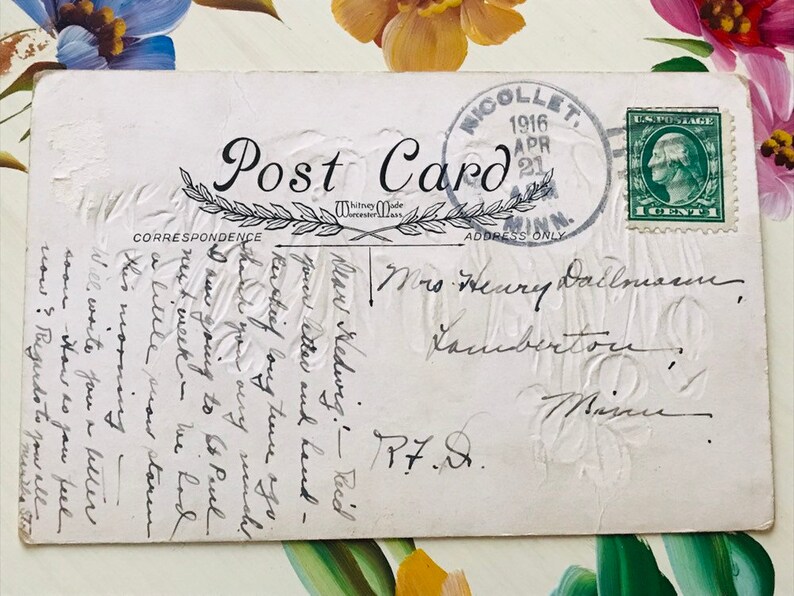 Post Card
Whitney Made
Worcester Mass.
CORRESPONDENCE
ADDRESS ONLY
NICOLLET,
1916
APR
21
MINN.
U.S. POSTAGE
1 CENT 1
Mrs. Henry Dallmann,
Lamberton,
Minn.
R.F.D.
Dear Hedwig:— Rec'd
your letter and hand-
kerchief long time ago
thank you very much.
I am going to St Paul
next week — We had
a little snow storm
this morning —
Will write you a letter
soon — How do you feel
now? Regards to you all
Martha